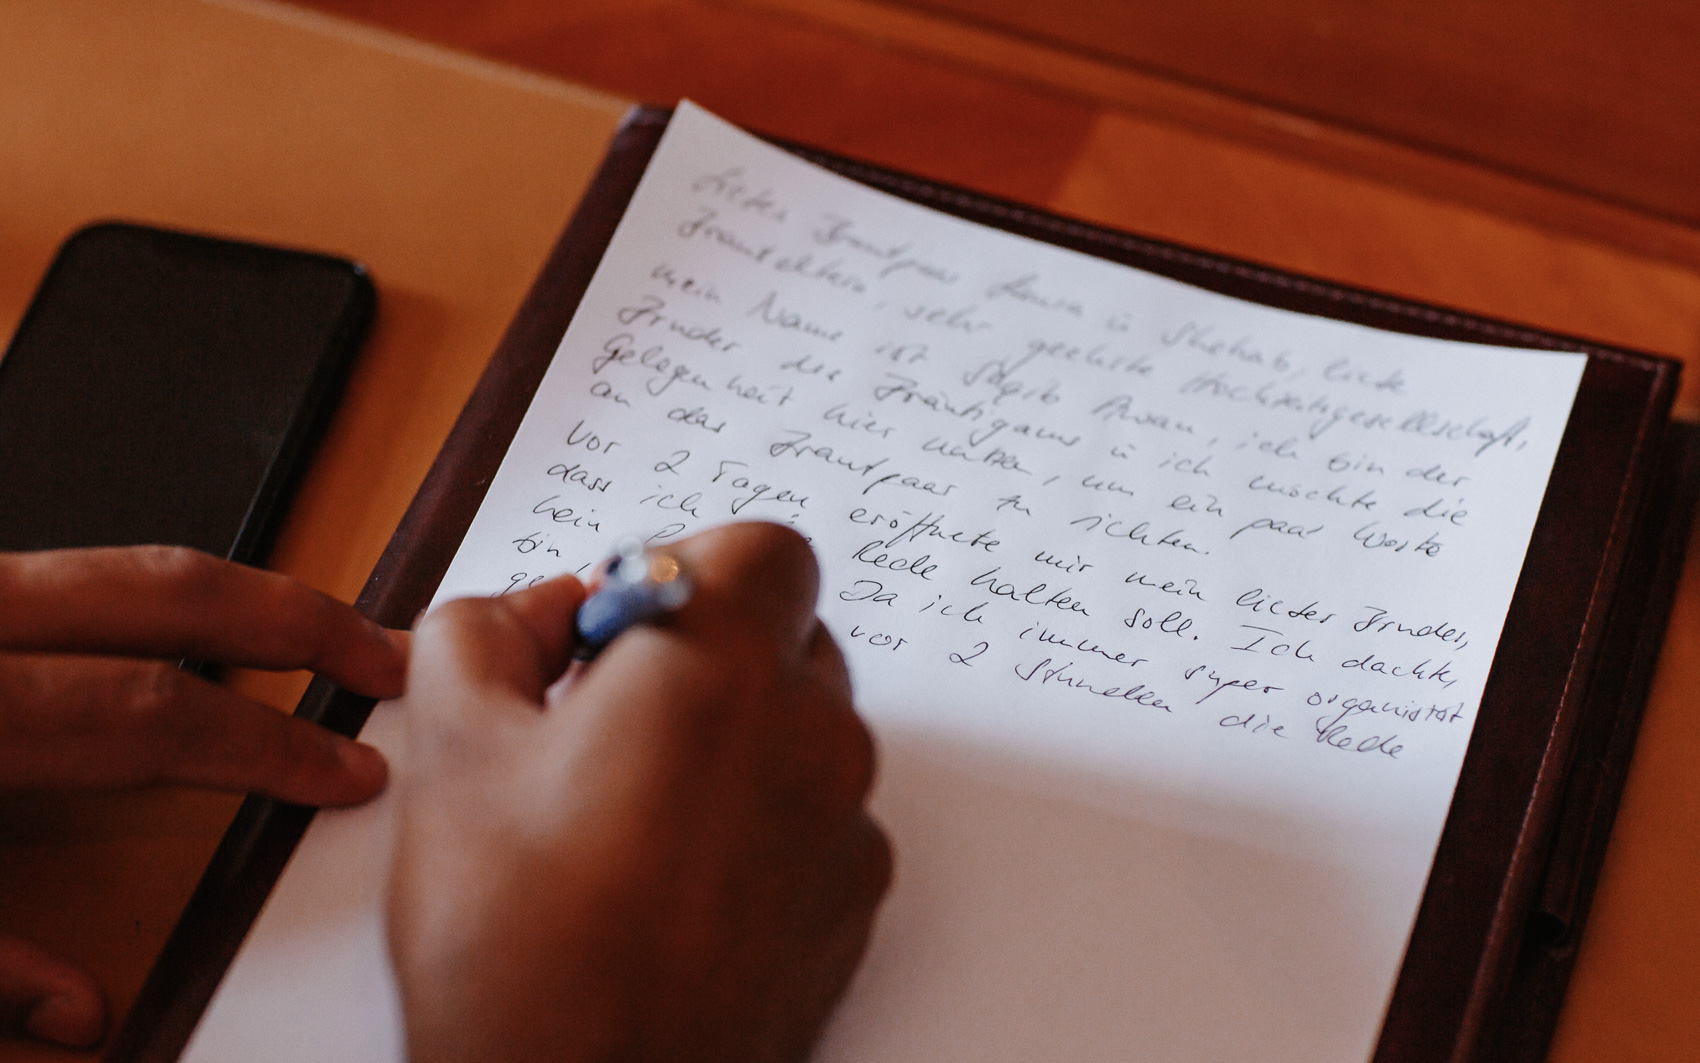 Liebes Brautpaar Humra u Shehab, liebe
Brauteltern, sehr geehrte Hochzeitsgesellschaft,
mein Name ist Sagib Awan, ich bin der
Bruder des Bräutigams u ich möchte die
Gelegenheit hier nutzen, um ein paar Worte
an das Brautpaar zu richten.
Vor 2 Tagen eröffnete mir mein lieber Bruder,
dass ich eine Rede halten soll. Ich dachte,
kein Da ich immer super organisiert
bin vor 2 Stunden die Rede